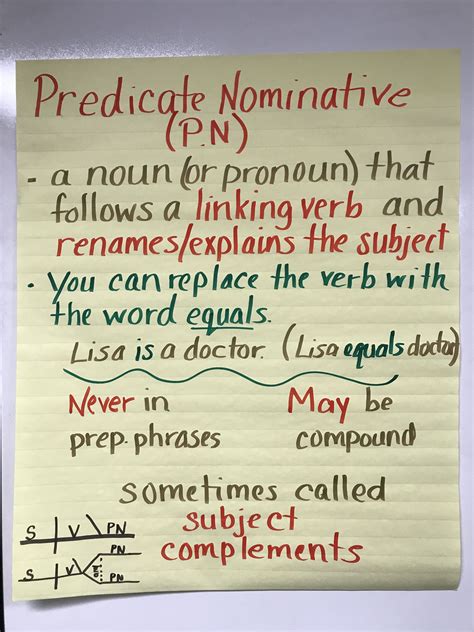 Predicate Nominative
(P.N)
- a noun (or pronoun) that
follows a linking verb and
renames/explains the subject
• You can replace the verb with
the word equals.
Lisa is a doctor. (Lisa equals doctor)
Never in
prep. phrases
May be
compound
sometimes called
subject
complements
S V PN
PN
S V
PN